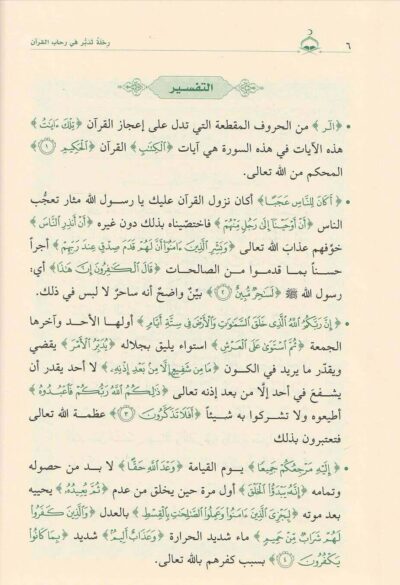 ٦
رحلة تدبُّر في رحاب القرآن
التفسير
• ﴿الٓر﴾ من الحروف المقطعة التي تدل على إعجاز القرآن ﴿تِلۡكَ ءَايَٰتُ﴾
هذه الآيات في هذه السورة هي آيات ﴿ٱلۡكِتَٰبِ﴾ القرآن ﴿ٱلۡحَكِيمِ ١﴾
المحكم من الله تعالى.
• ﴿أَكَانَ لِلنَّاسِ عَجَبًا﴾ أكان نزول القرآن عليك يا رسول الله مثار تعجُّب
الناس ﴿أَنۡ أَوۡحَيۡنَآ إِلَىٰ رَجُلٖ مِّنۡهُمۡ﴾ فاختصّيناه بذلك دون غيره ﴿أَنۡ أَنذِرِ ٱلنَّاسَ﴾
خوِّفهم عذابَ الله تعالى ﴿وَبَشِّرِ ٱلَّذِينَ ءَامَنُوٓاْ أَنَّ لَهُمۡ قَدَمَ صِدۡقٍ عِندَ رَبِّهِمۡ﴾ أجراً
حسناً بما قدموا من الصالحات ﴿قَالَ ٱلۡكَٰفِرُونَ إِنَّ هَٰذَا﴾ أي:
رسول الله ﷺ ﴿لَسَٰحِرٞ مُّبِينٌ ٢﴾ بيّنٌ واضحٌ أنه ساحرٌ لا لبس في ذلك.
• ﴿إِنَّ رَبَّكُمُ ٱللَّهُ ٱلَّذِي خَلَقَ ٱلسَّمَٰوَٰتِ وَٱلۡأَرۡضَ فِي سِتَّةِ أَيَّامٖ﴾ أولها الأحد وآخرها
الجمعة ﴿ثُمَّ ٱسۡتَوَىٰ عَلَى ٱلۡعَرۡشِ﴾ استواء يليق بجلاله ﴿يُدَبِّرُ ٱلۡأَمۡرَ﴾ يقضي
ويقدّر ما يريد في الكون ﴿مَا مِن شَفِيعٍ إِلَّا مِنۢ بَعۡدِ إِذۡنِهِۦ﴾ لا أحد يقدر أن
يشفعَ في أحد إلّا من بعد إذنه تعالى ﴿ذَٰلِكُمُ ٱللَّهُ رَبُّكُمۡ فَٱعۡبُدُوهُ﴾
أطيعوه ولا تشركوا به شيئاً ﴿أَفَلَا تَذَكَّرُونَ ٣﴾ عظمة الله تعالى
فتعتبرون بذلك
• ﴿إِلَيۡهِ مَرۡجِعُكُمۡ جَمِيعٗا﴾ يوم القيامة ﴿وَعۡدَ ٱللَّهِ حَقًّا﴾ لا بد من حصوله
وتمامه ﴿إِنَّهُۥ يَبۡدَؤُاْ ٱلۡخَلۡقَ﴾ أول مرة حين يخلق من عدم ﴿ثُمَّ يُعِيدُهُۥ﴾ يحييه
بعد موته ﴿لِيَجۡزِيَ ٱلَّذِينَ ءَامَنُواْ وَعَمِلُواْ ٱلصَّٰلِحَٰتِ بِٱلۡقِسۡطِ﴾ بالعدل ﴿وَٱلَّذِينَ كَفَرُواْ
لَهُمۡ شَرَابٞ مِّنۡ حَمِيمٖ﴾ ماء شديد الحرارة ﴿وَعَذَابٌ أَلِيمُۢ﴾ شديد ﴿بِمَا كَانُواْ
يَكۡفُرُونَ ٤﴾ بسبب كفرهم بالله تعالى.